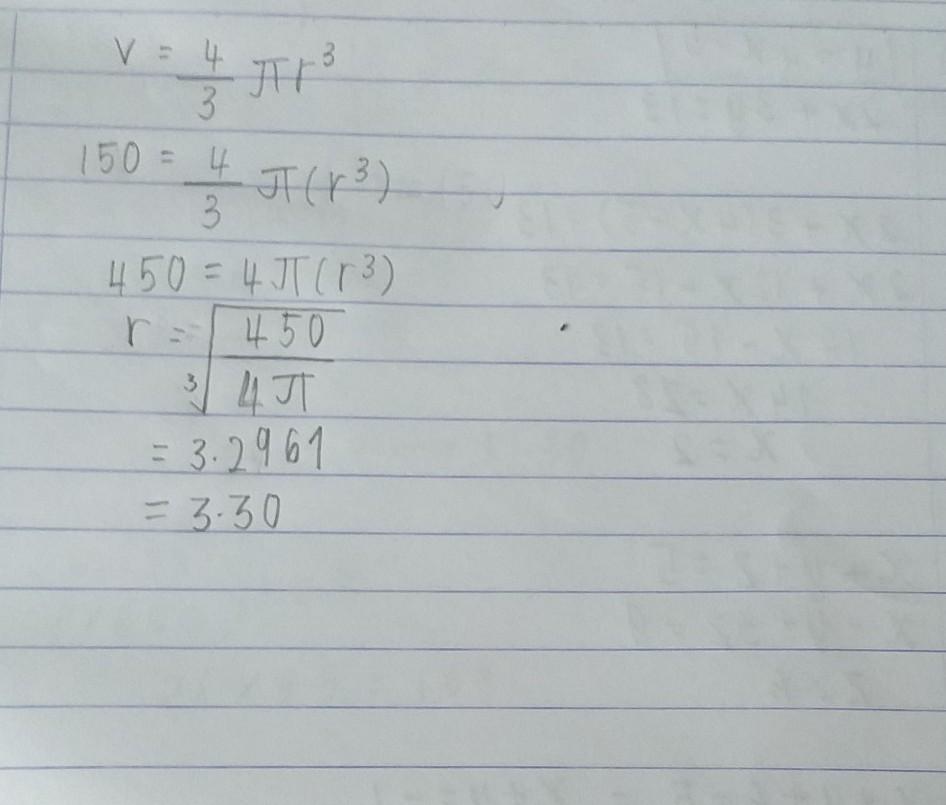 V = 4/3 πr³
150 = 4/3 π(r³)
450 = 4π(r³)
r = ∛(450/4π)
= 3.2961
= 3.30